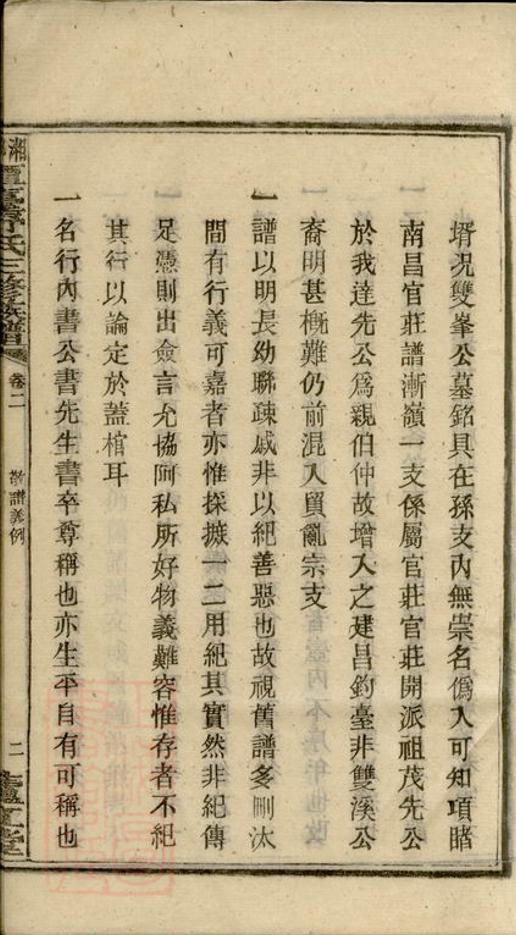 壻况雙峯公墓銘具在孫支內無崇名僞入可知項睹
南昌官莊譜漸嶺一支係屬官莊官莊開派祖茂先公
於我達先公爲親伯仲故增入之建昌釣臺非雙溪公
裔明甚概難仍前混入貿亂宗支
一譜以明長幼聯疎戚非以紀善惡也故視舊譜多刪汰
間有行義可嘉者亦惟採摭一二用紀其實然非紀傳
足憑則出僉言允協阿私所好物義難容惟存者不紀
其行以論定於蓋棺耳
一名行內書公書先生書卒尊稱也亦生平自有可稱也
氏三修族譜
卷二
譜義例
二
堂